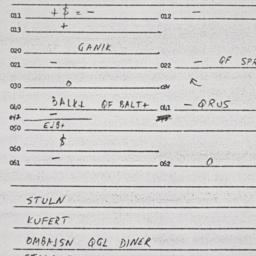 011 + $ = - 012 -
013 +
020 GANIK
021 - 022 - QF SPR
030 0
040 BALK+ QF BALT+ 041 - QRUS
042 -
050 EJB+
060 $
061 - 062 0
STULN
KUFERT
OMBAJSN QGL DINER